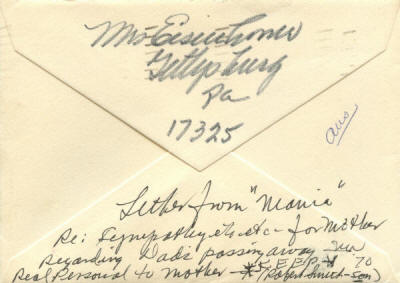 Mrs Eisenhower
Gettysburg
Pa
17325
ans
Letter from "Mamie"
Re: Sympathy etc. for Mother
regarding Dad's passing away '70
Real Personal to Mother - * (Robert Smith - son)